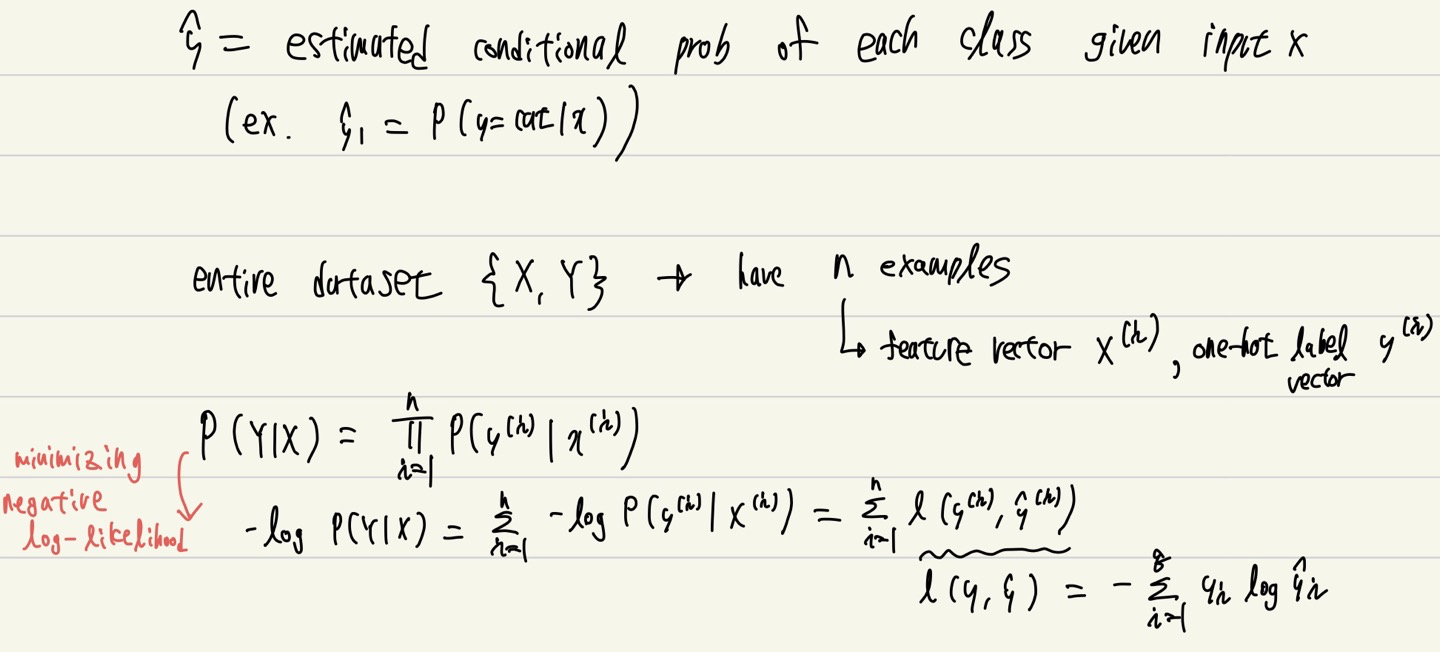 ŷ = estimated conditional prob of each class given input x
(ex. ŷ₁ = P(y=cat|x))
entire dataset {X, Y} → have n examples
↳ feature vector x⁽ⁱ⁾, one-hot label vector y⁽ⁱ⁾
P(Y|X) = ∏ᵢ₌₁ⁿ P(y⁽ⁱ⁾ | x⁽ⁱ⁾)
minimizing
negative
log-likelihood
-log P(Y|X) = Σᵢ₌₁ⁿ -log P(y⁽ⁱ⁾ | x⁽ⁱ⁾) = Σᵢ₌₁ⁿ l(y⁽ⁱ⁾, ŷ⁽ⁱ⁾)
l(y, ŷ) = - Σᵢ₌₁ yᵢ log ŷᵢ